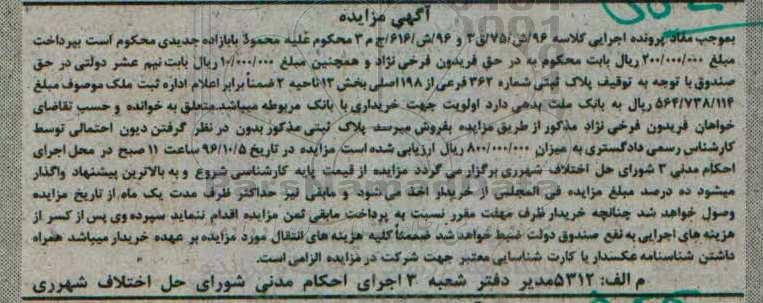 آگهی مزایده
بموجب مفاد پرونده اجرایی کلاسه ۹۶/ش/۷۵/ق۳ و ۹۶/ش/۶۱۶/ج م ۳ محکوم علیه محمود بابازاده جدیدی محکوم است بپرداخت
مبلغ ۲۰۰/۰۰۰/۰۰۰ ریال بابت محکوم به در حق فریدون فرخی نژاد و همچنین مبلغ ۱۰/۰۰۰/۰۰۰ ریال بابت نیم عشر دولتی در حق
صندوق با توجه به توقیف پلاک ثبتی شماره ۳۶۲ فرعی از ۱۹۸ اصلی بخش ۱۲ ناحیه ۲ ضمناً برابر اعلام اداره ثبت ملک موصوف مبلغ
۵۶۴/۷۳۸/۱۱۴ ریال به بانک ملت بدهی دارد اولویت جهت خریداری با بانک مربوطه میباشد.متعلق به خوانده و حسب تقاضای
خواهان فریدون فرخی نژاد مذکور از طریق مزایده بفروش میرسد پلاک ثبتی مذکور بدون در نظر گرفتن دیون احتمالی توسط
کارشناس رسمی دادگستری به میزان ۸۰۰/۰۰۰/۰۰۰ ریال ارزیابی شده است مزایده در تاریخ ۹۶/۱۰/۵ ساعت ۱۱ صبح در محل اجرای
احکام مدنی ۳ شورای حل اختلاف شهرری برگزار می گردد مزایده از قیمت پایه کارشناسی شروع و به بالاترین پیشنهاد واگذار
میشود ده درصد مبلغ مزایده فی المجلس از خریدار اخذ می شود و مابقی نیز حداکثر ظرف مدت یک ماه از تاریخ مزایده
وصول خواهد شد چنانچه خریدار ظرف مهلت مقرر نسبت به پرداخت مابقی ثمن مزایده اقدام ننماید سپرده وی پس از کسر از
هزینه های اجرایی به نفع صندوق دولت ضبط خواهد شد ضمناً کلیه هزینه های انتقال مورد مزایده بر عهده خریدار میباشد همراه
داشتن شناسنامه عکسدار یا کارت شناسایی معتبر جهت شرکت در مزایده الزامی است.
م الف: ۵۳۱۲ مدیر دفتر شعبه ۳ اجرای احکام مدنی شورای حل اختلاف شهرری